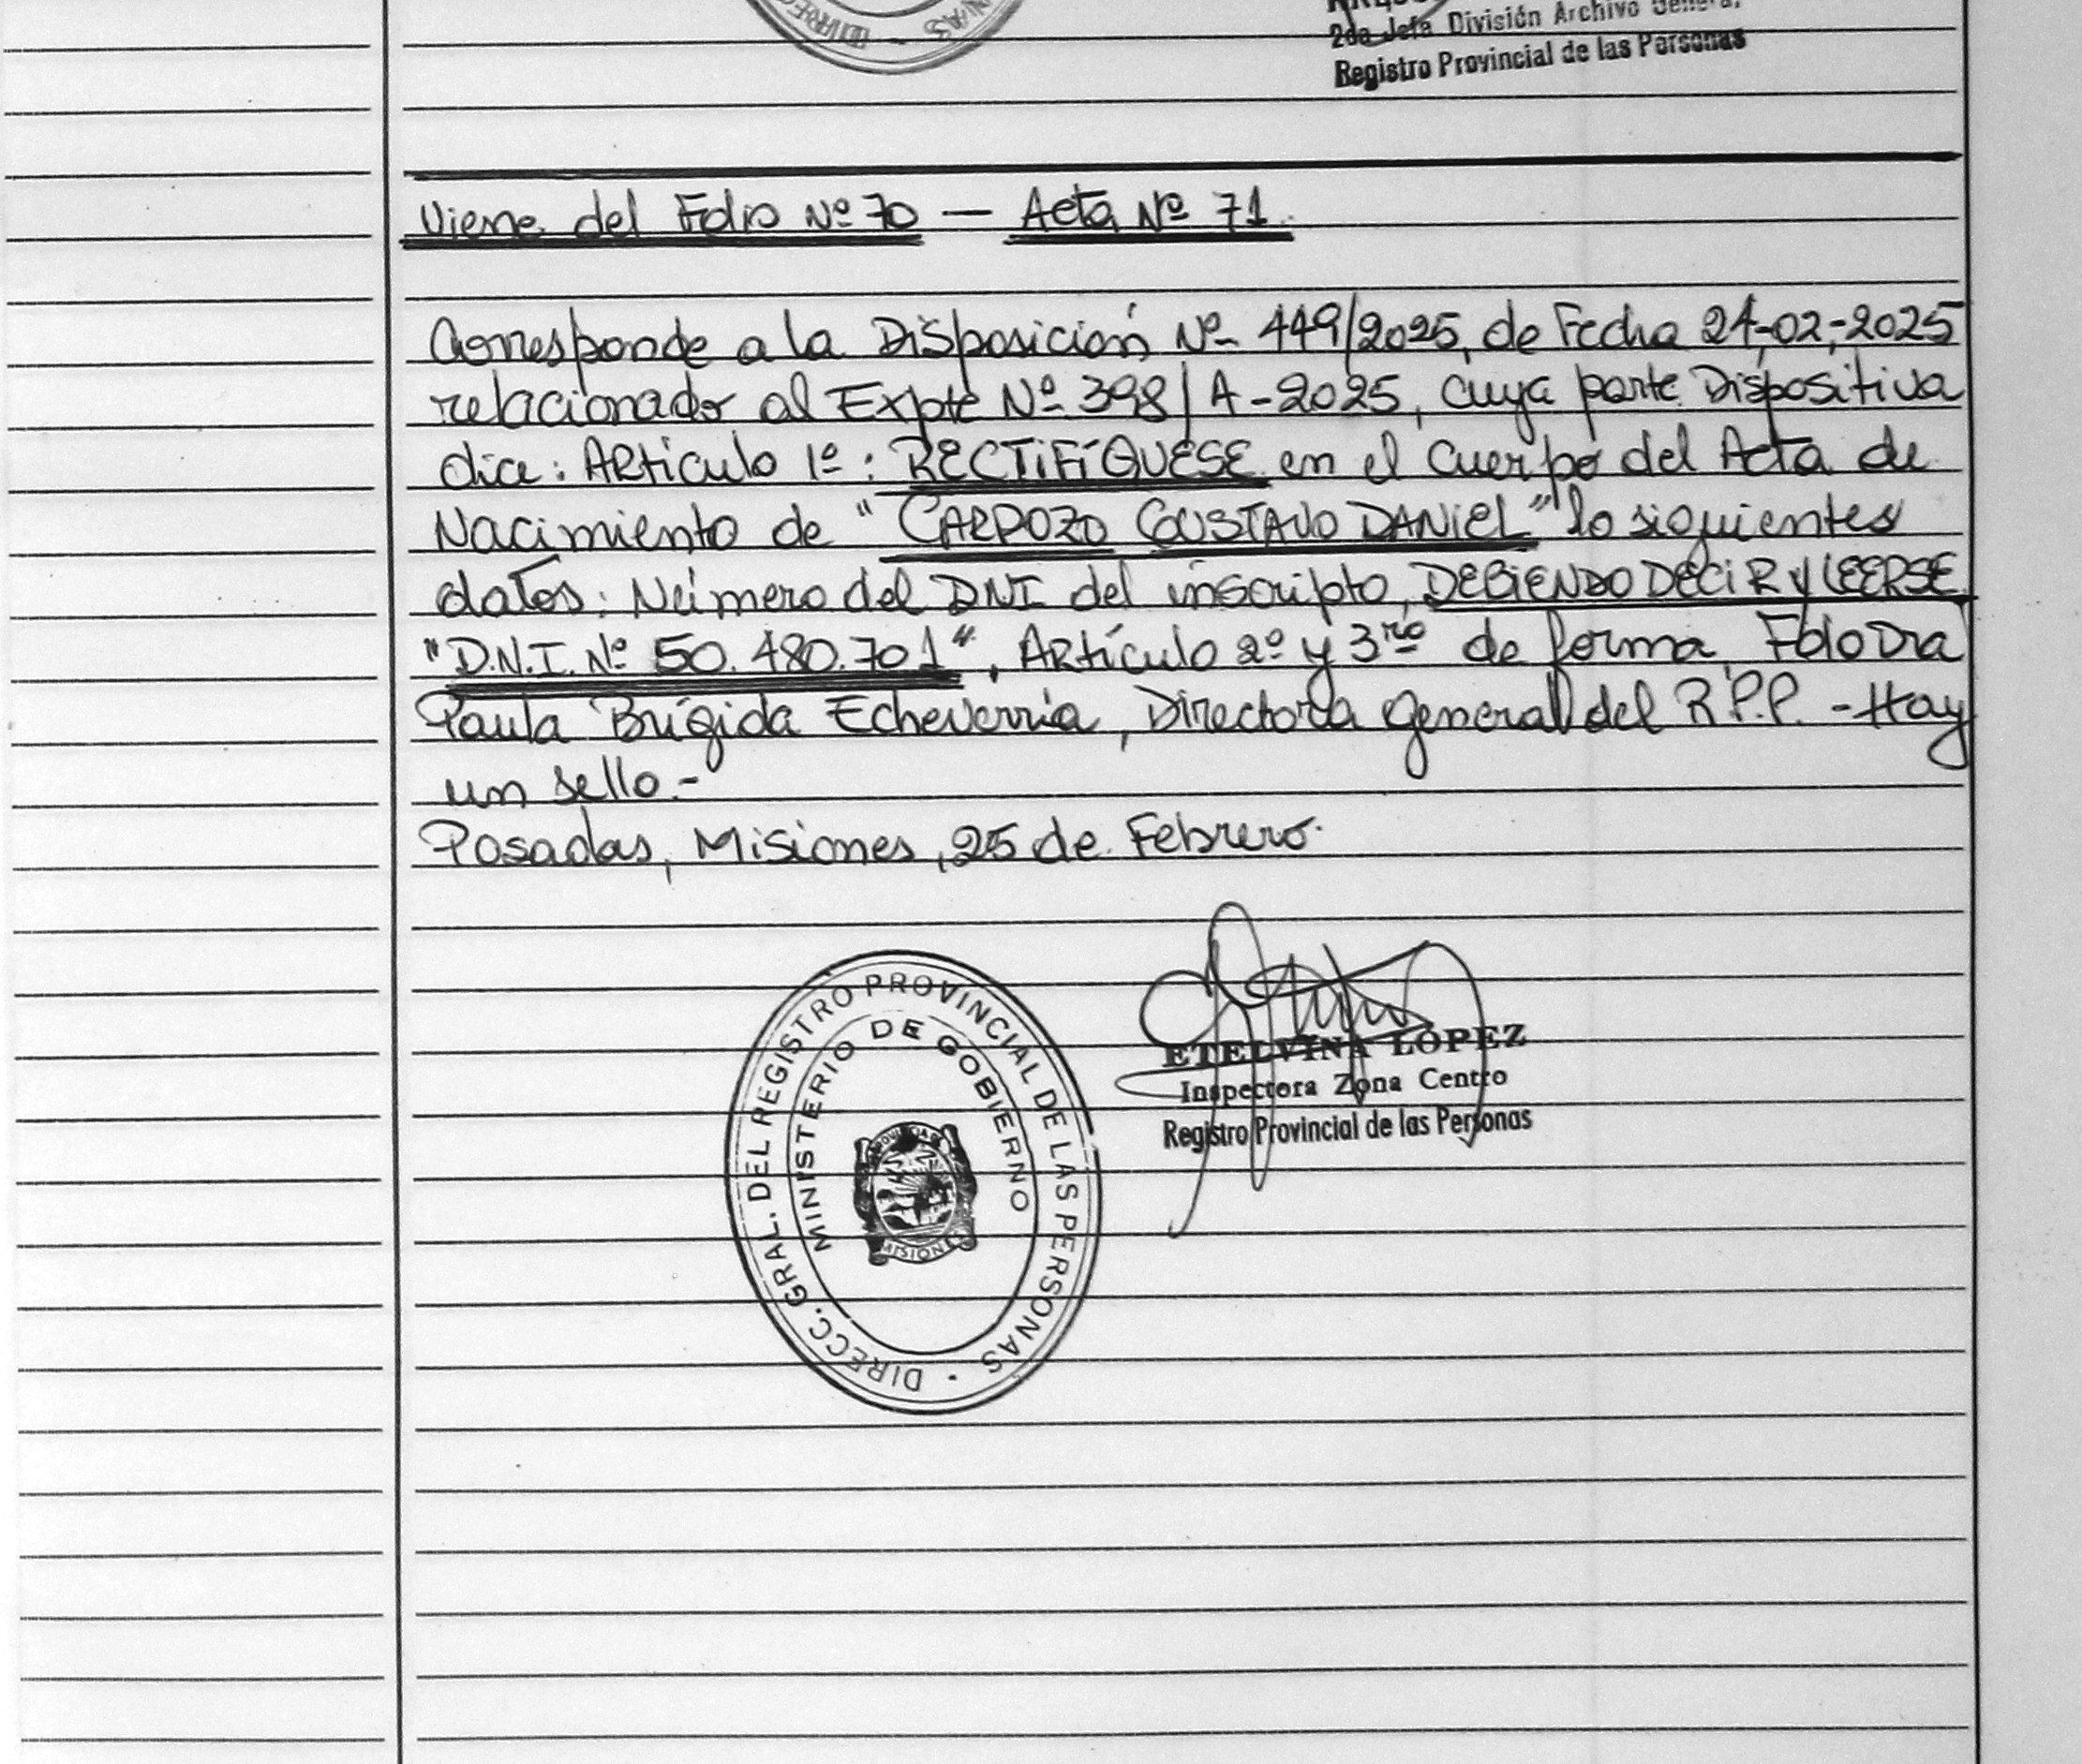 DIREC - NAS
2da Jefa División Archivo General,
Registro Provincial de las Personas
Viene del Folio Nº 70 — Acta Nº 71
Corresponde a la Disposición Nº 449/2025, de Fecha 24-02-2025
relacionado al Expte Nº 398/A-2025, cuya parte Dispositiva
dice: Artículo 1º: RECTIFÍQUESE en el Cuerpo del Acta de
Nacimiento de "CARDOZO GUSTAVO DANIEL" lo siguientes
datos: Número del DNI del inscripto, DEBIENDO DECIR Y LEERSE
"D.N.I. Nº 50.480.701", Artículo 2º y 3ro de forma, Fdo Dra
Paula Brígida Echeverría, Directora General del R.P.P. - Hay
un sello.-
Posadas, Misiones, 25 de Febrero.
DIRECC. GRAL. DEL REGISTRO PROVINCIAL DE LAS PERSONAS
MINISTERIO DE GOBIERNO
MISIONES
ETELVINA LÓPEZ
Inspectora Zona Centro
Registro Provincial de las Personas